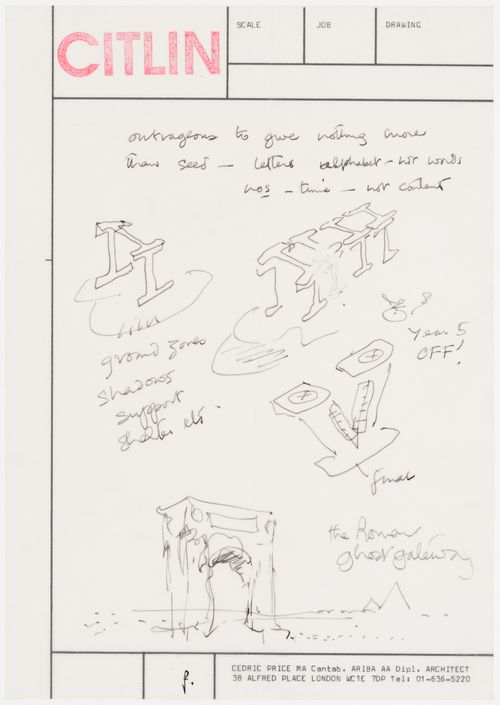 CITLIN
SCALE
JOB
DRAWING
outrageous to give nothing more
than seed – letters alphabet – not words
nos – time – not content
ground zones
shadows
support
shelter etc.
Year 5
OFF!
final
the Roman
ghost gateway
CEDRIC PRICE MA Cantab. ARIBA AA Dipl. ARCHITECT
38 ALFRED PLACE LONDON WC1E 7DP Tel: 01-636-5220